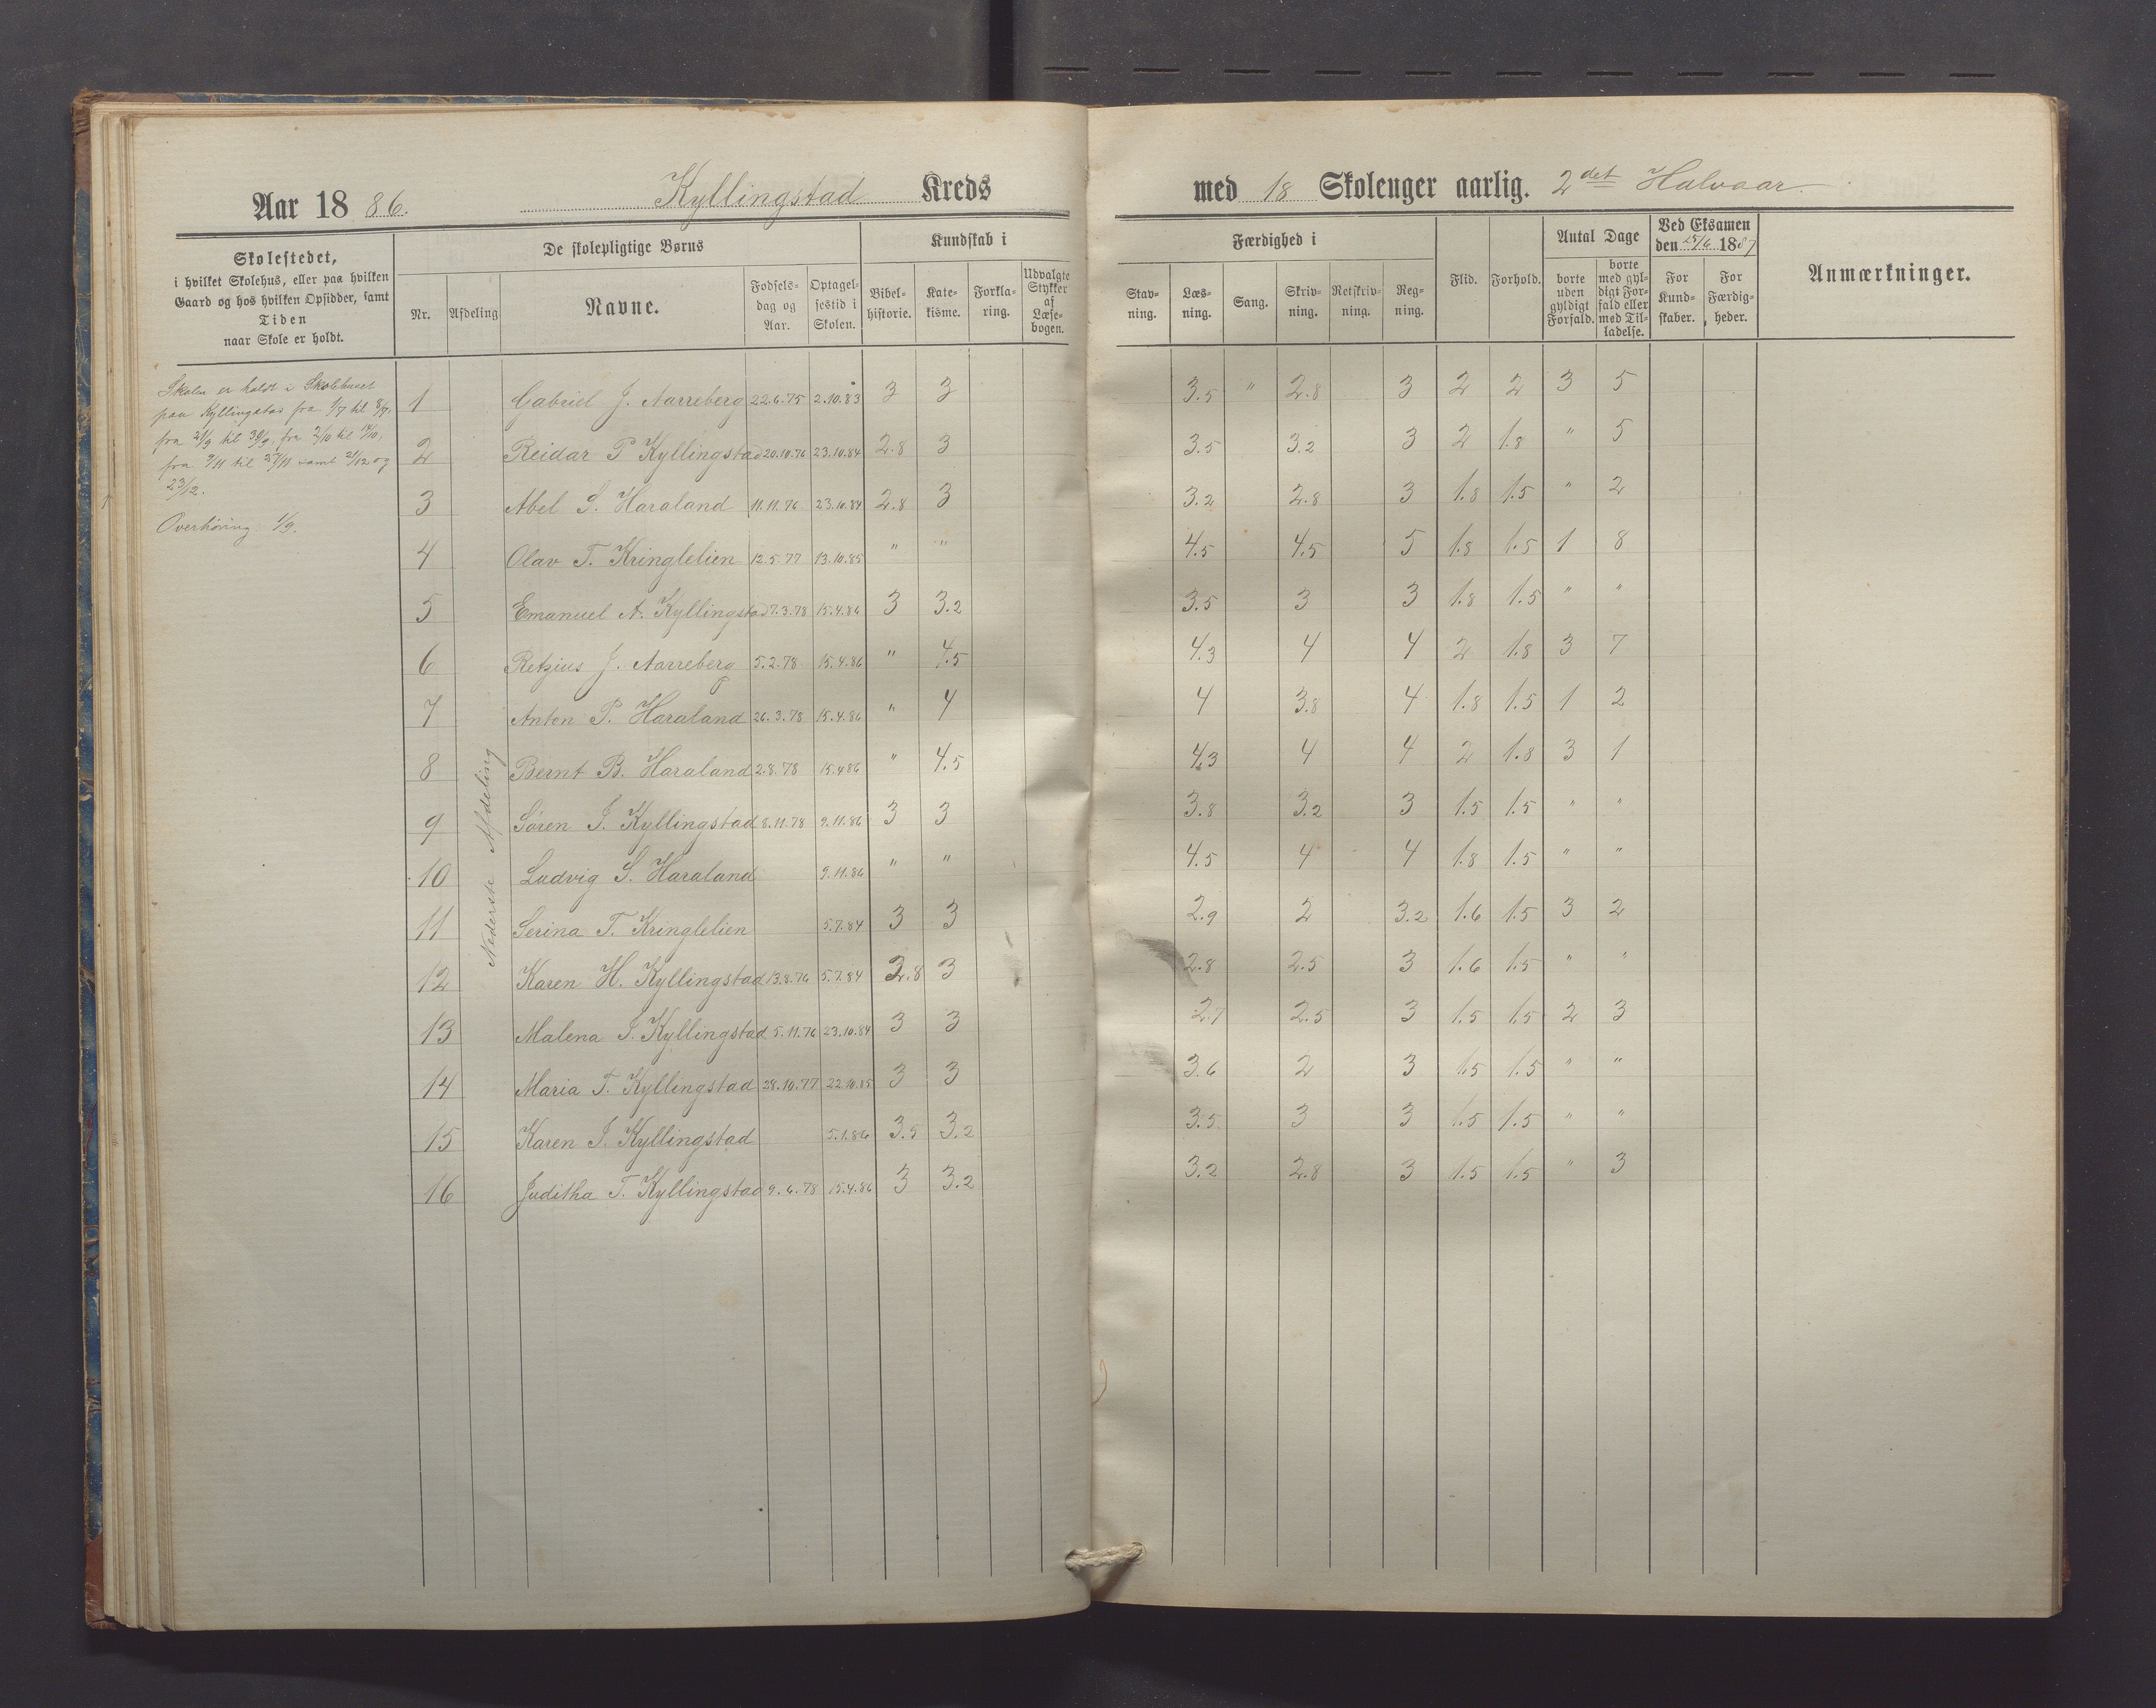 Aar 1886. Kyllingstad Kreds med 18 Skoleuger aarlig. 2det Halvaar.
Skolestedet,
i hvilket Skolehus, eller paa hvilken
Gaard og hos hvilken Opsidder, samt
Tiden
naar Skole er holdt.
De skolepligtige Børns
Nr. Afdeling Navne. Fødselsdag og Aar. Optagelsestid i Skolen.
Kundskab i
Bibelhistorie. Katekisme. Forklaring. Udvalgte Stykker af Læsebogen.
Færdighed i
Stavning. Læsning. Sang. Skrivning. Retskrivning. Regning.
Flid. Forhold.
Antal Dage
borte uden gyldigt Forfald. borte med gyldigt Forfald eller med Tilladelse.
Ved Eksamen
den 25/6 1887
For Kundskaber. For Færdigheder.
Anmærkninger.
Skolen er holdt i Skolehuset
paa Kyllingstad fra 1/7 til 8/7.
fra 21/9 til 30/9, fra 2/10 til 14/10,
fra 9/11 til 27/11 samt 21/12 og
23/12.
Overhøring 1/9.
Nederste Afdeling
1 Gabriel J. Aarreberg 22.6.75 2.10.83 3 3 3.5 " 2.8 3 2 2 3 5
2 Reidar P Kyllingstad 20.10.76 23.10.84 2.8 3 3.5 3.2 3 2 1.8 " 5
3 Abel S. Haraland 11.11.76 23.10.84 2.8 3 3.2 2.8 3 1.8 1.5 " 2
4 Olav T. Kringlelien 12.5.77 13.10.85 " " 4.5 4.5 5 1.8 1.5 1 8
5 Emanuel A. Kyllingstad 7.3.78 15.4.86 3 3.2 3.5 3 3 1.8 1.5 " "
6 Retzius J. Aarreberg 5.2.78 15.4.86 " 4.5 4.3 4 4 2 1.8 3 7
7 Anton P. Haraland 26.3.78 15.4.86 " 4 4 3.8 4 1.8 1.5 1 2
8 Bernt B. Haraland 2.8.78 15.4.86 " 4.5 4.3 4 4 2 1.8 3 1
9 Søren J. Kyllingstad 8.11.78 9.11.86 3 3 3.8 3.2 3 1.5 1.5 " "
10 Ludvig S. Haraland 9.11.86 " " 4.5 4 4 1.8 1.5 " "
11 Serina T. Kringlelien 5.7.84 3 3 2.9 2 3.2 1.6 1.5 3 2
12 Karen H. Kyllingstad 13.8.76 5.7.84 2.8 3 2.8 2.5 3 1.6 1.5 " "
13 Malena J. Kyllingstad 5.11.76 23.10.84 3 3 2.7 2.5 3 1.5 1.5 2 3
14 Maria T. Kyllingstad 28.10.77 22.10.85 3 3 3.6 2 3 1.5 1.5 " "
15 Karen J. Kyllingstad 5.1.86 3.5 3.2 3.5 3 3 1.5 1.5 " "
16 Juditha T. Kyllingstad 9.6.78 15.4.86 3 3.2 3.2 2.8 3 1.5 1.5 " 3